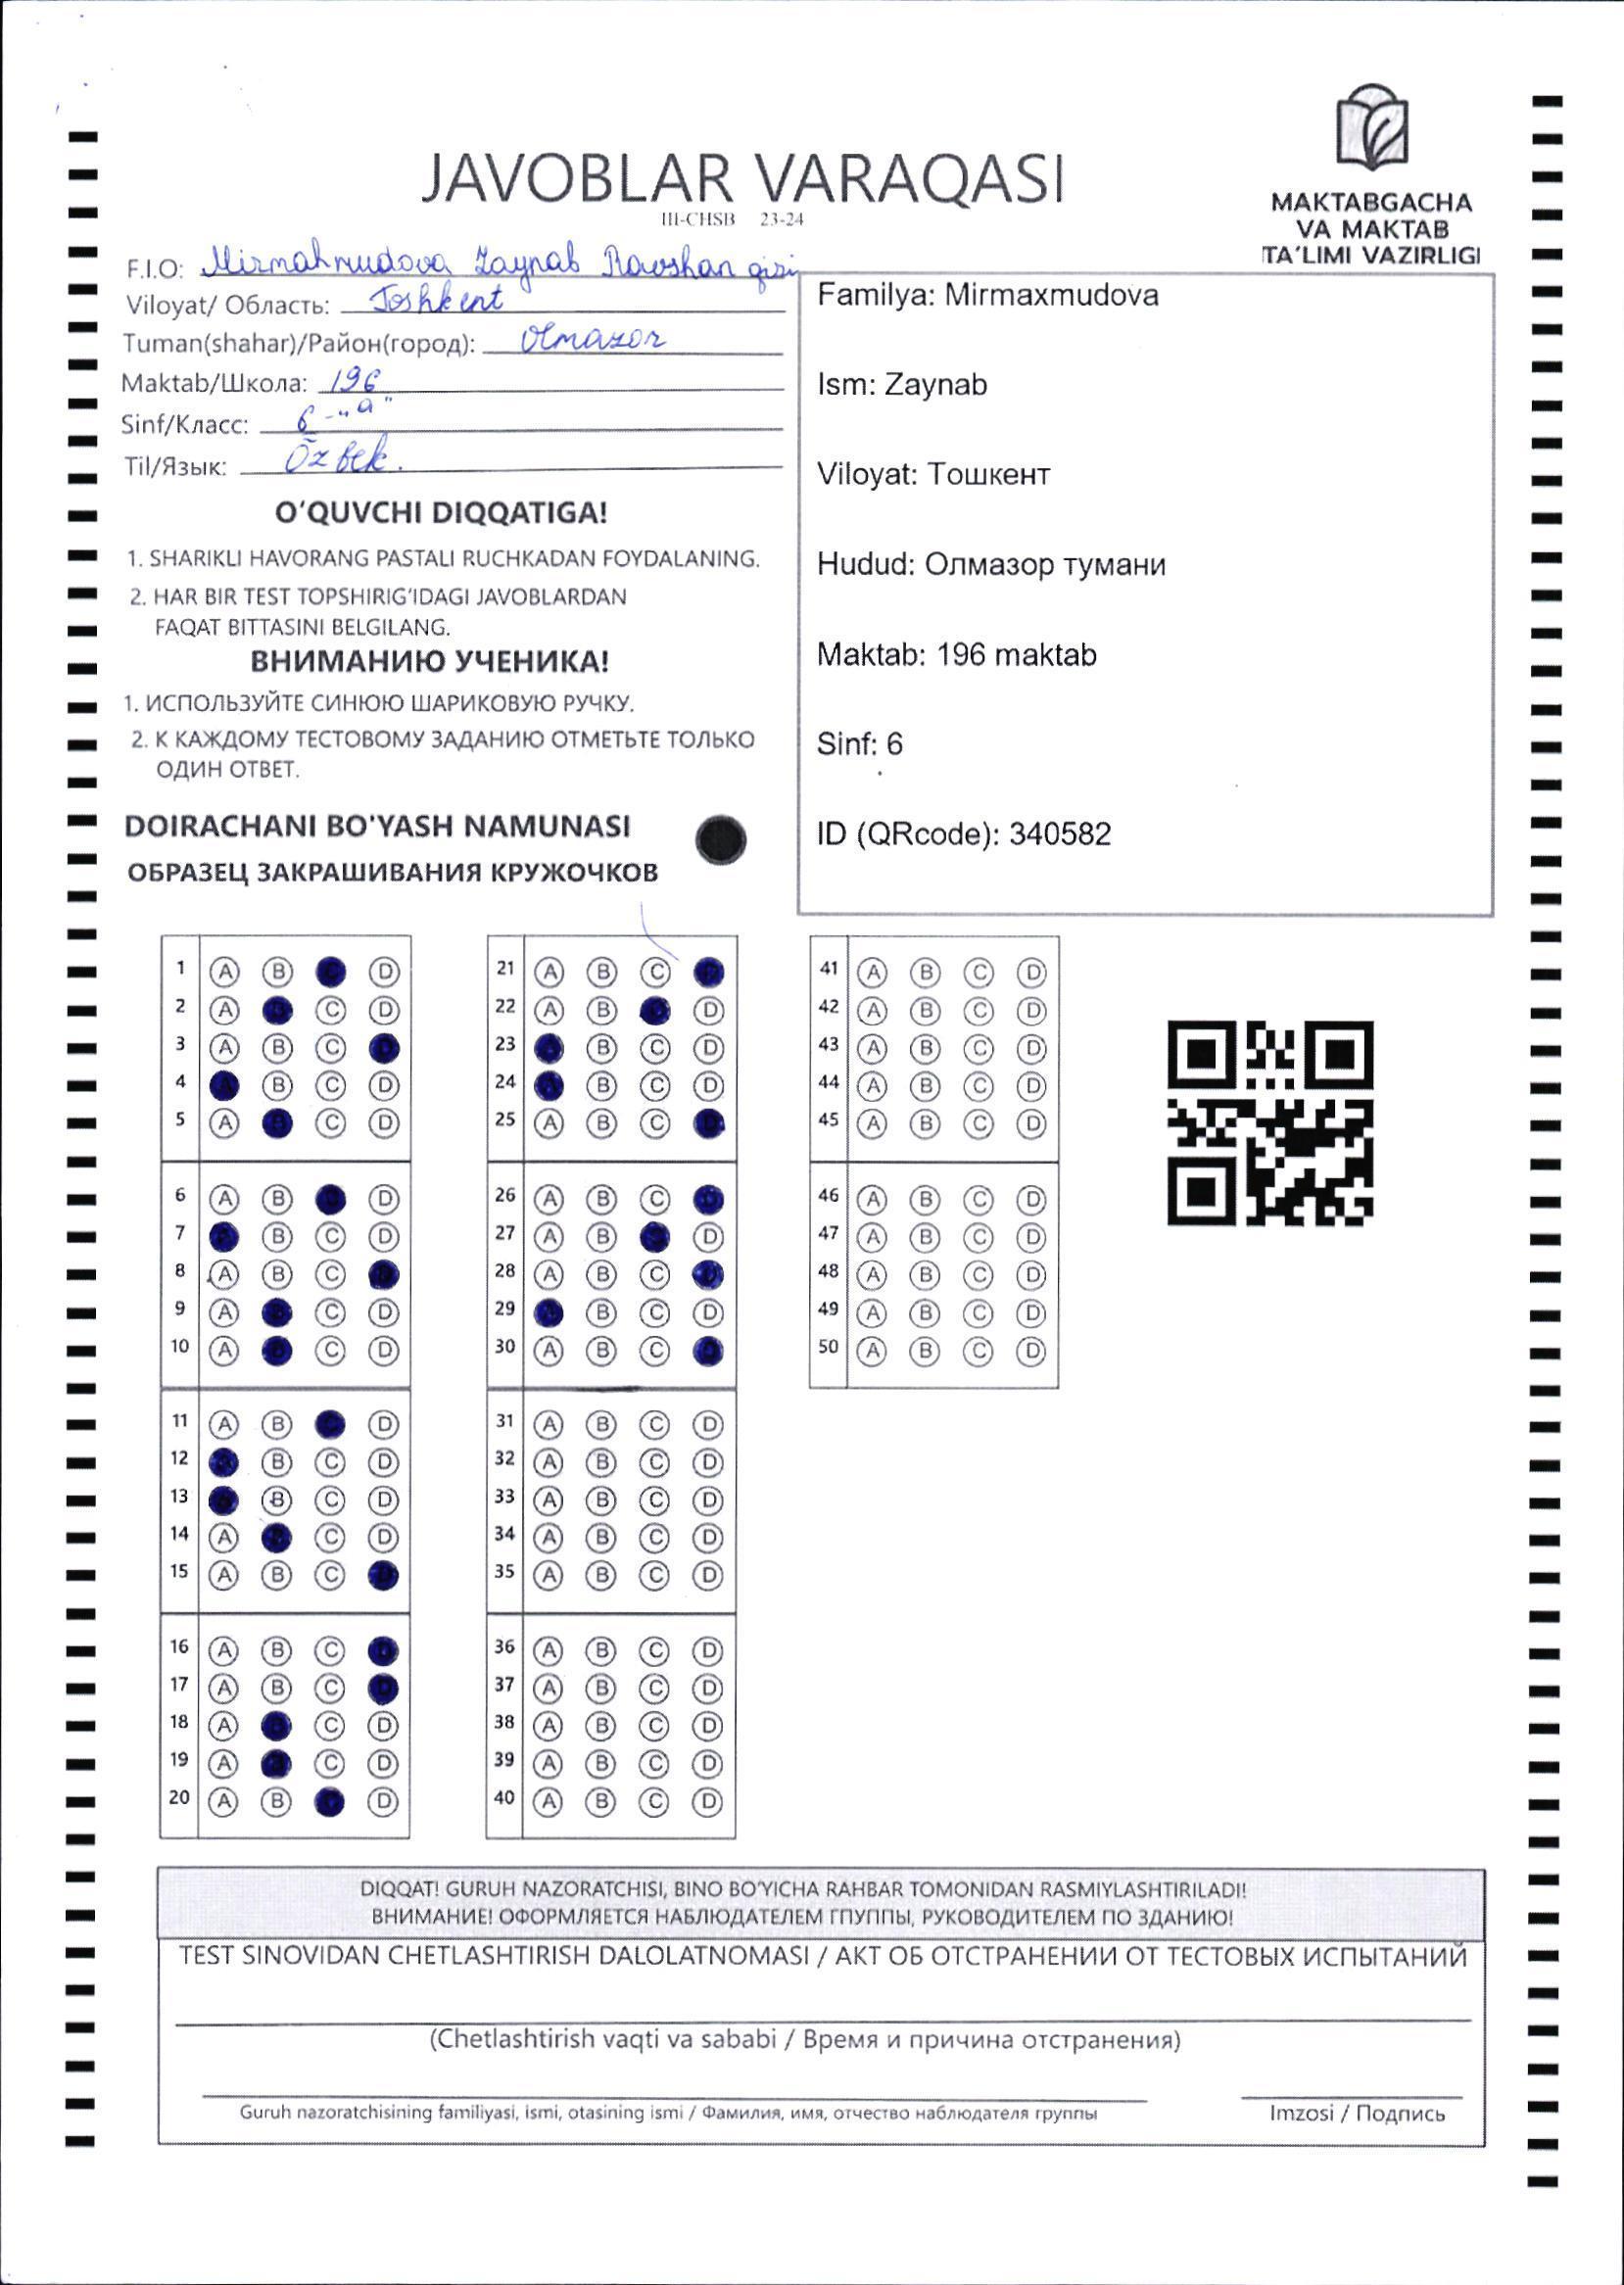 JAVOBLAR VARAQASI
III-CHSB 23-24
MAKTABGACHA
VA MAKTAB
TA'LIMI VAZIRLIGI
F.I.O: Mirmahmudova Zaynab Ravshan qizi
Viloyat/ Область: Toshkent
Tuman(shahar)/Район(город): Olmazor
Maktab/Школа: 196
Sinf/Класс: 6-"a"
Til/Язык: Ōzbek.
Familya: Mirmaxmudova
Ism: Zaynab
Viloyat: Тошкент
Hudud: Олмазор тумани
Maktab: 196 maktab
Sinf: 6
ID (QRcode): 340582
O'QUVCHI DIQQATIGA!
1. SHARIKLI HAVORANG PASTALI RUCHKADAN FOYDALANING.
2. HAR BIR TEST TOPSHIRIG'IDAGI JAVOBLARDAN
FAQAT BITTASINI BELGILANG.
ВНИМАНИЮ УЧЕНИКА!
1. ИСПОЛЬЗУЙТЕ СИНЮЮ ШАРИКОВУЮ РУЧКУ.
2. К КАЖДОМУ ТЕСТОВОМУ ЗАДАНИЮ ОТМЕТЬТЕ ТОЛЬКО
ОДИН ОТВЕТ.
DOIRACHANI BO'YASH NAMUNASI
ОБРАЗЕЦ ЗАКРАШИВАНИЯ КРУЖОЧКОВ
1 A B D
2 A C D
3 A B C D
4 A B C D
5 A B C D
6 A B D
7 B C D
8 A B C
9 A C D
10 A C D
11 A B D
12 A B C D
13 B C D
14 A C D
15 A B C D
16 A B C
17 A B C D
18 A C D
19 A C D
20 A B D
21 A B C
22 A B D
23 B C D
24 A B C D
25 A B C
26 A B C
27 A B D
28 A B C
29 B C D
30 A B C
31 A B C D
32 A B C D
33 A B C D
34 A B C D
35 A B C D
36 A B C D
37 A B C D
38 A B C D
39 A B C D
40 A B C D
41 A B C D
42 A B C D
43 A B C D
44 A B C D
45 A B C D
46 A B C D
47 A B C D
48 A B C D
49 A B C D
50 A B C D
DIQQAT! GURUH NAZORATCHISI, BINO BO'YICHA RAHBAR TOMONIDAN RASMIYLASHTIRILADI!
ВНИМАНИЕ! ОФОРМЛЯЕТСЯ НАБЛЮДАТЕЛЕМ ГПУППЫ, РУКОВОДИТЕЛЕМ ПО ЗДАНИЮ!
TEST SINOVIDAN CHETLASHTIRISH DALOLATNOMASI / АКТ ОБ ОТСТРАНЕНИИ ОТ ТЕСТОВЫХ ИСПЫТАНИЙ
(Chetlashtirish vaqti va sababi / Время и причина отстранения)
Guruh nazoratchisining familiyasi, ismi, otasining ismi / Фамилия, имя, отчество наблюдателя группы
Imzosi / Подпись